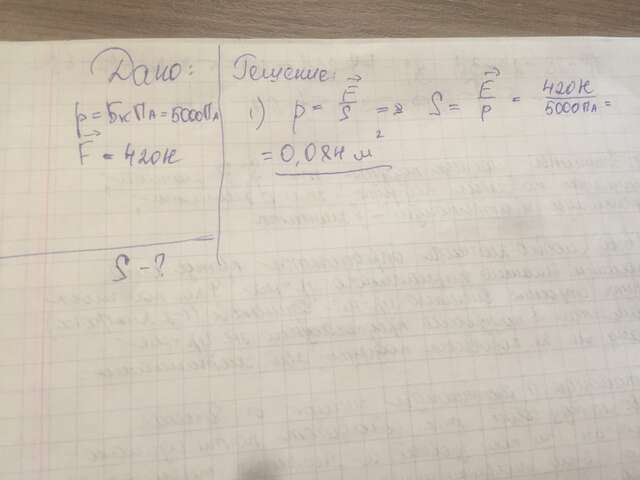 Дано:
p = 5кПа = 5000Па
F = 420Н
S - ?
Решение:
1) p = F/S => S = F/p = 420Н/5000Па =
= 0,084 м²